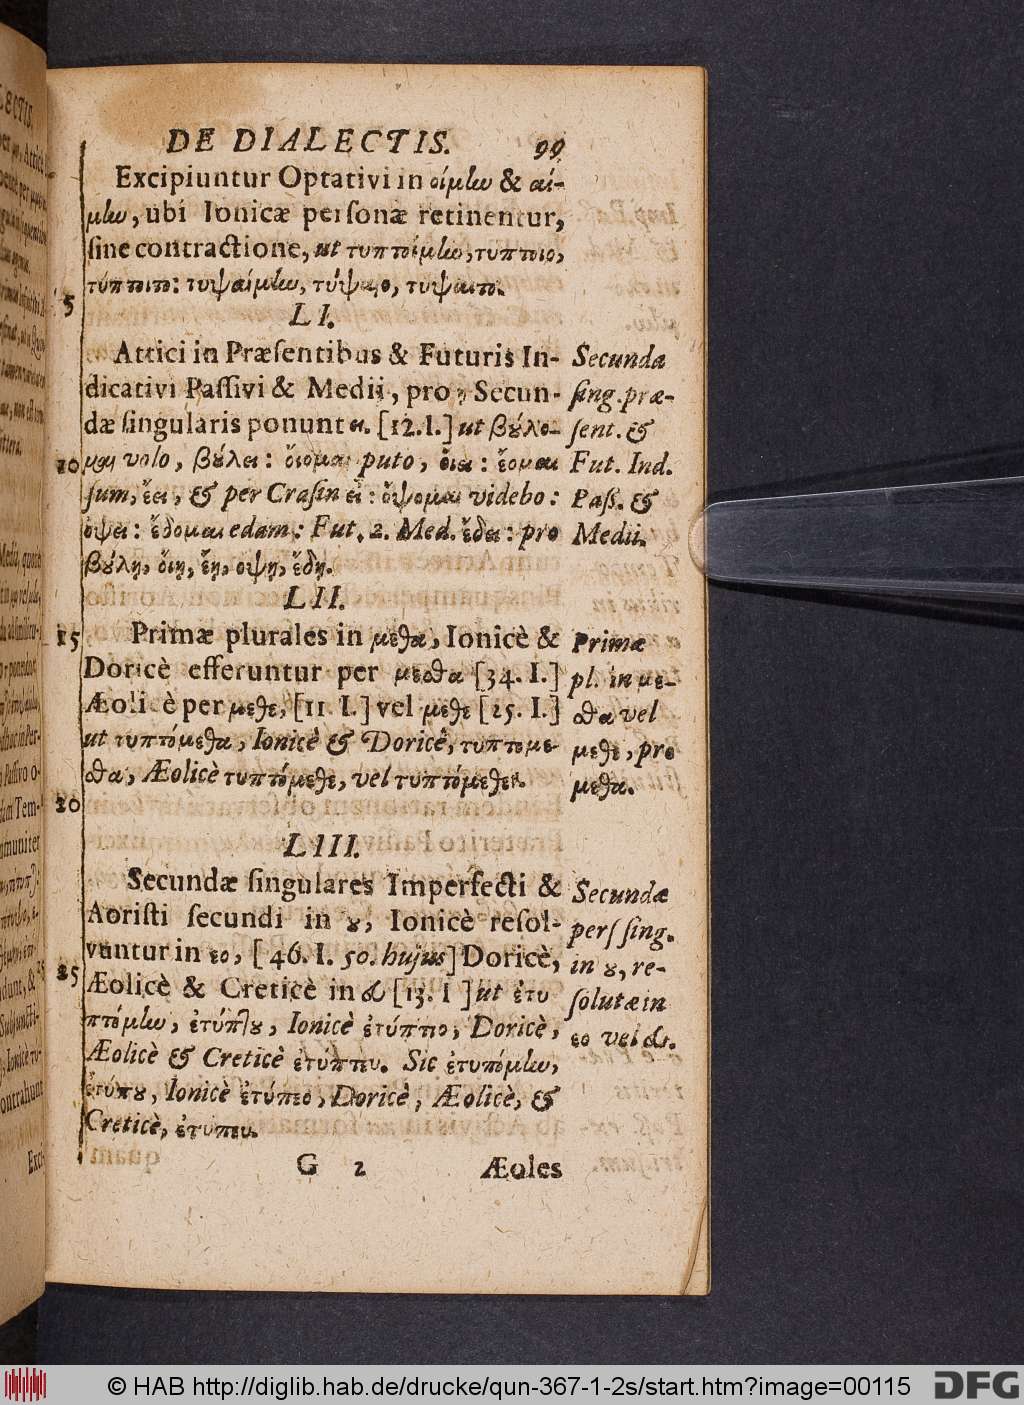 DE DIALECTIS. 99
Excipiuntur Optativi in οίμην & αί-
μην, ubi Ionicæ personæ retinentur,
sine contractione, ut τυπτοίμην, τύπτοιο,
τύπτοιτο: τυψαίμην, τύψαιο, τύψαιτο.
5
LI.
Attici in Præsentibus & Futuris In-
dicativi Passivi & Medii, pro ῃ Secun-
dæ singularis ponunt ει. [12. I.] ut βȣ́λο-
μαι volo, βȣ́λει: ὄιομαι puto, ὄιει: ἔομαι
10
sum, ἔει, & per Crasin εἶ: ὄψομαι videbo:
ὄψει: ἔδομαι edam: Fut. 2. Med. ἔδει: pro
βȣ́λῃ, ὄιῃ, ἔῃ, ὄψῃ, ἔδῃ.
Secunda
sing. præ-
sent. &
Fut. Ind.
Pass. &
Medii.
LII.
15
Primæ plurales in μεθα, Ionicè &
Doricè efferuntur per μεσθα [34. I.]
Æolicè per μεθε, [11 I.] vel μεθε [25. I.]
ut τυπτόμεθα, Ionicè & Doricè, τυπτομε-
σθα, Æolicè τυπτόμεθε, vel τυπτόμεθεν.
20
Primæ
pl. in με-
σθα vel
μεθε, pro
μεθα.
LIII.
Secundæ singulares Imperfecti &
Aoristi secundi in ȣ, Ionicè resol-
vuntur in εο, [46. I. 50. hujus] Doricè,
25
Æolicè & Creticè in ευ [13. I ] ut ἐτυ
πτόμην, ἐτύπτȣ, Ionicè ἐτύπτεο, Doricè,
Æolicè & Creticè ἐτύπτευ. Sic ἐτυπόμην,
ἐτύπȣ, Ionicè ἐτύπεο, Doricè, Æolicè, &
Creticè, ἐτύπευ.
Secundæ
pers sing.
in ȣ, re-
solutæ in
εο vel ευ.
G 2 Æoles
© HAB http://diglib.hab.de/drucke/qun-367-1-2s/start.htm?image=00115 DFG